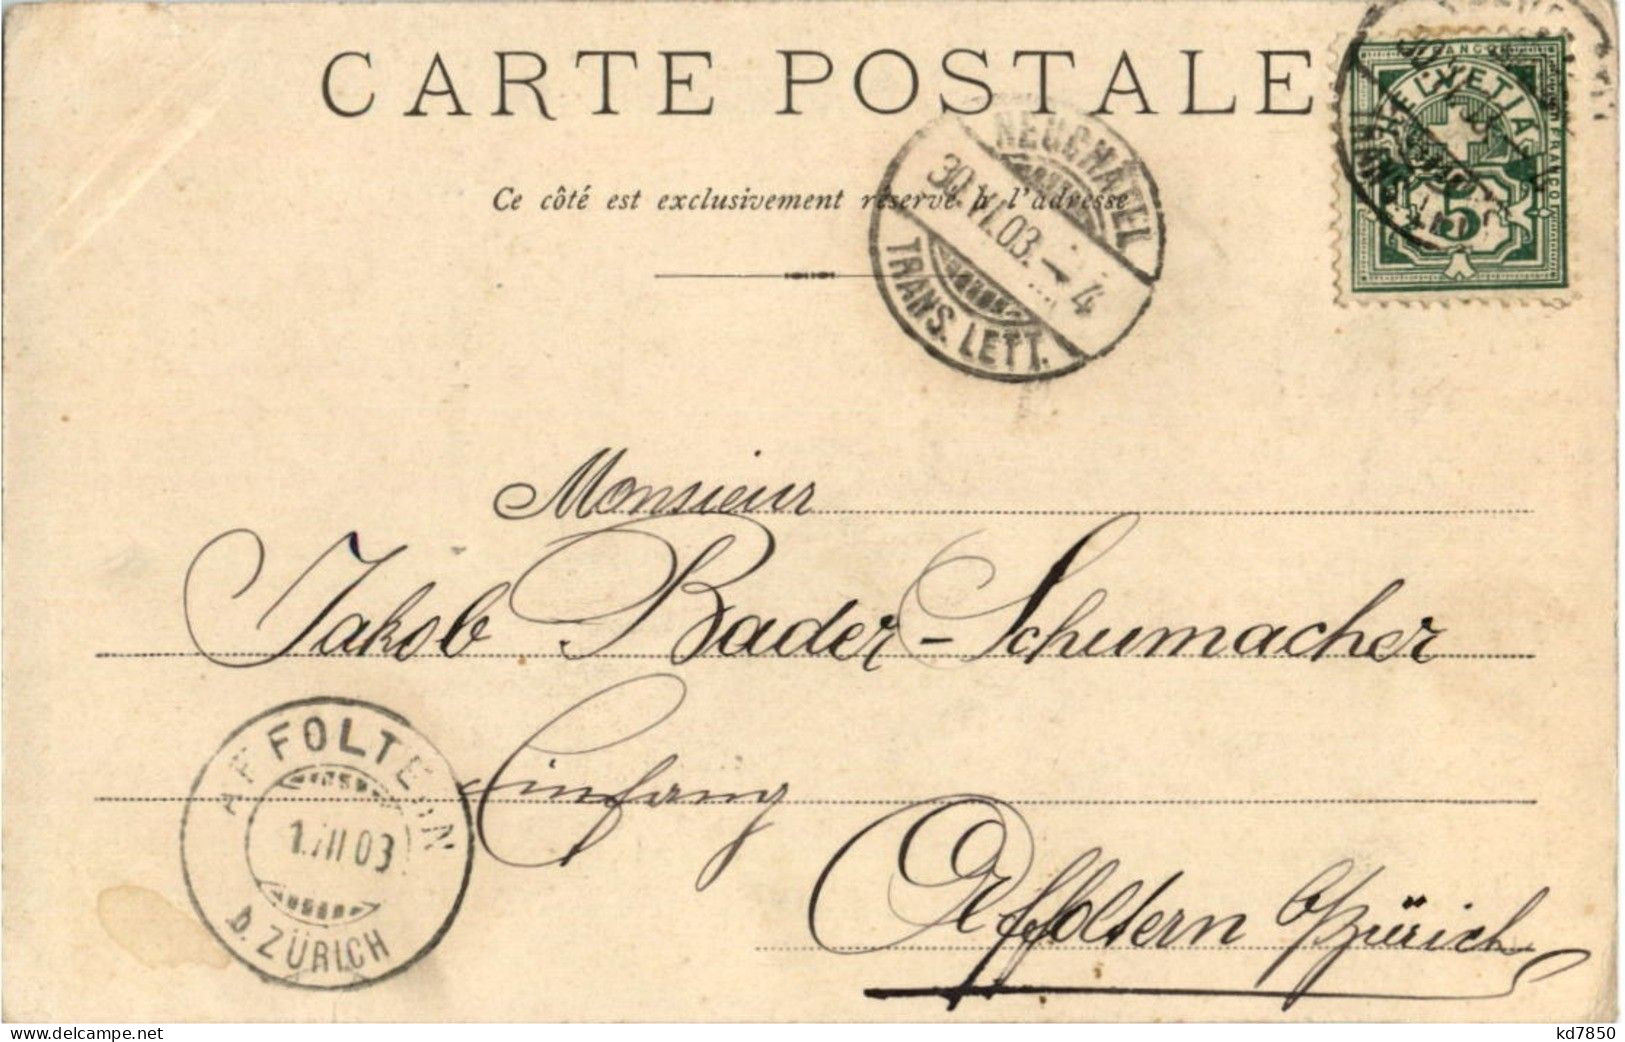 CARTE POSTALE
Ce côté est exclusivement réservé à l'adresse
NEUCHATEL
30.VI.03. - 4
TRANS. LETT.
FRANCO
HELVETIA
FRANCO
5
Monsieur
Jakob Bader-Schumacher
Einfang
Affoltern b/Zürich
AFFOLTERN
1.VII 03
b. ZÜRICH
kd7850